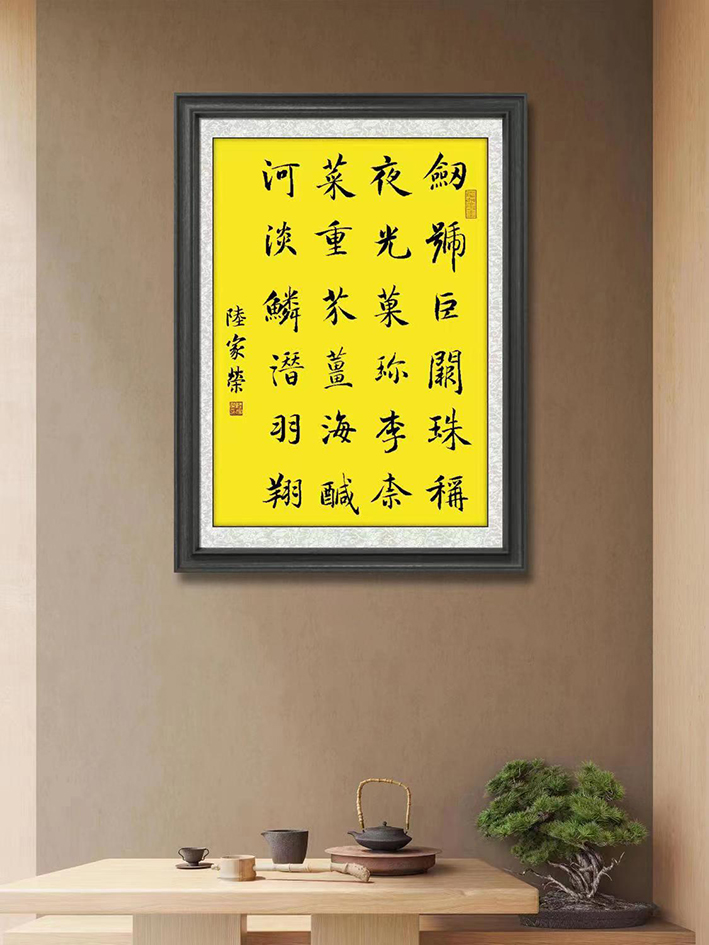 劒號巨闕珠稱
夜光菓珎李柰
菜重芥薑海醎
河淡鱗潛羽翔
陸家榮